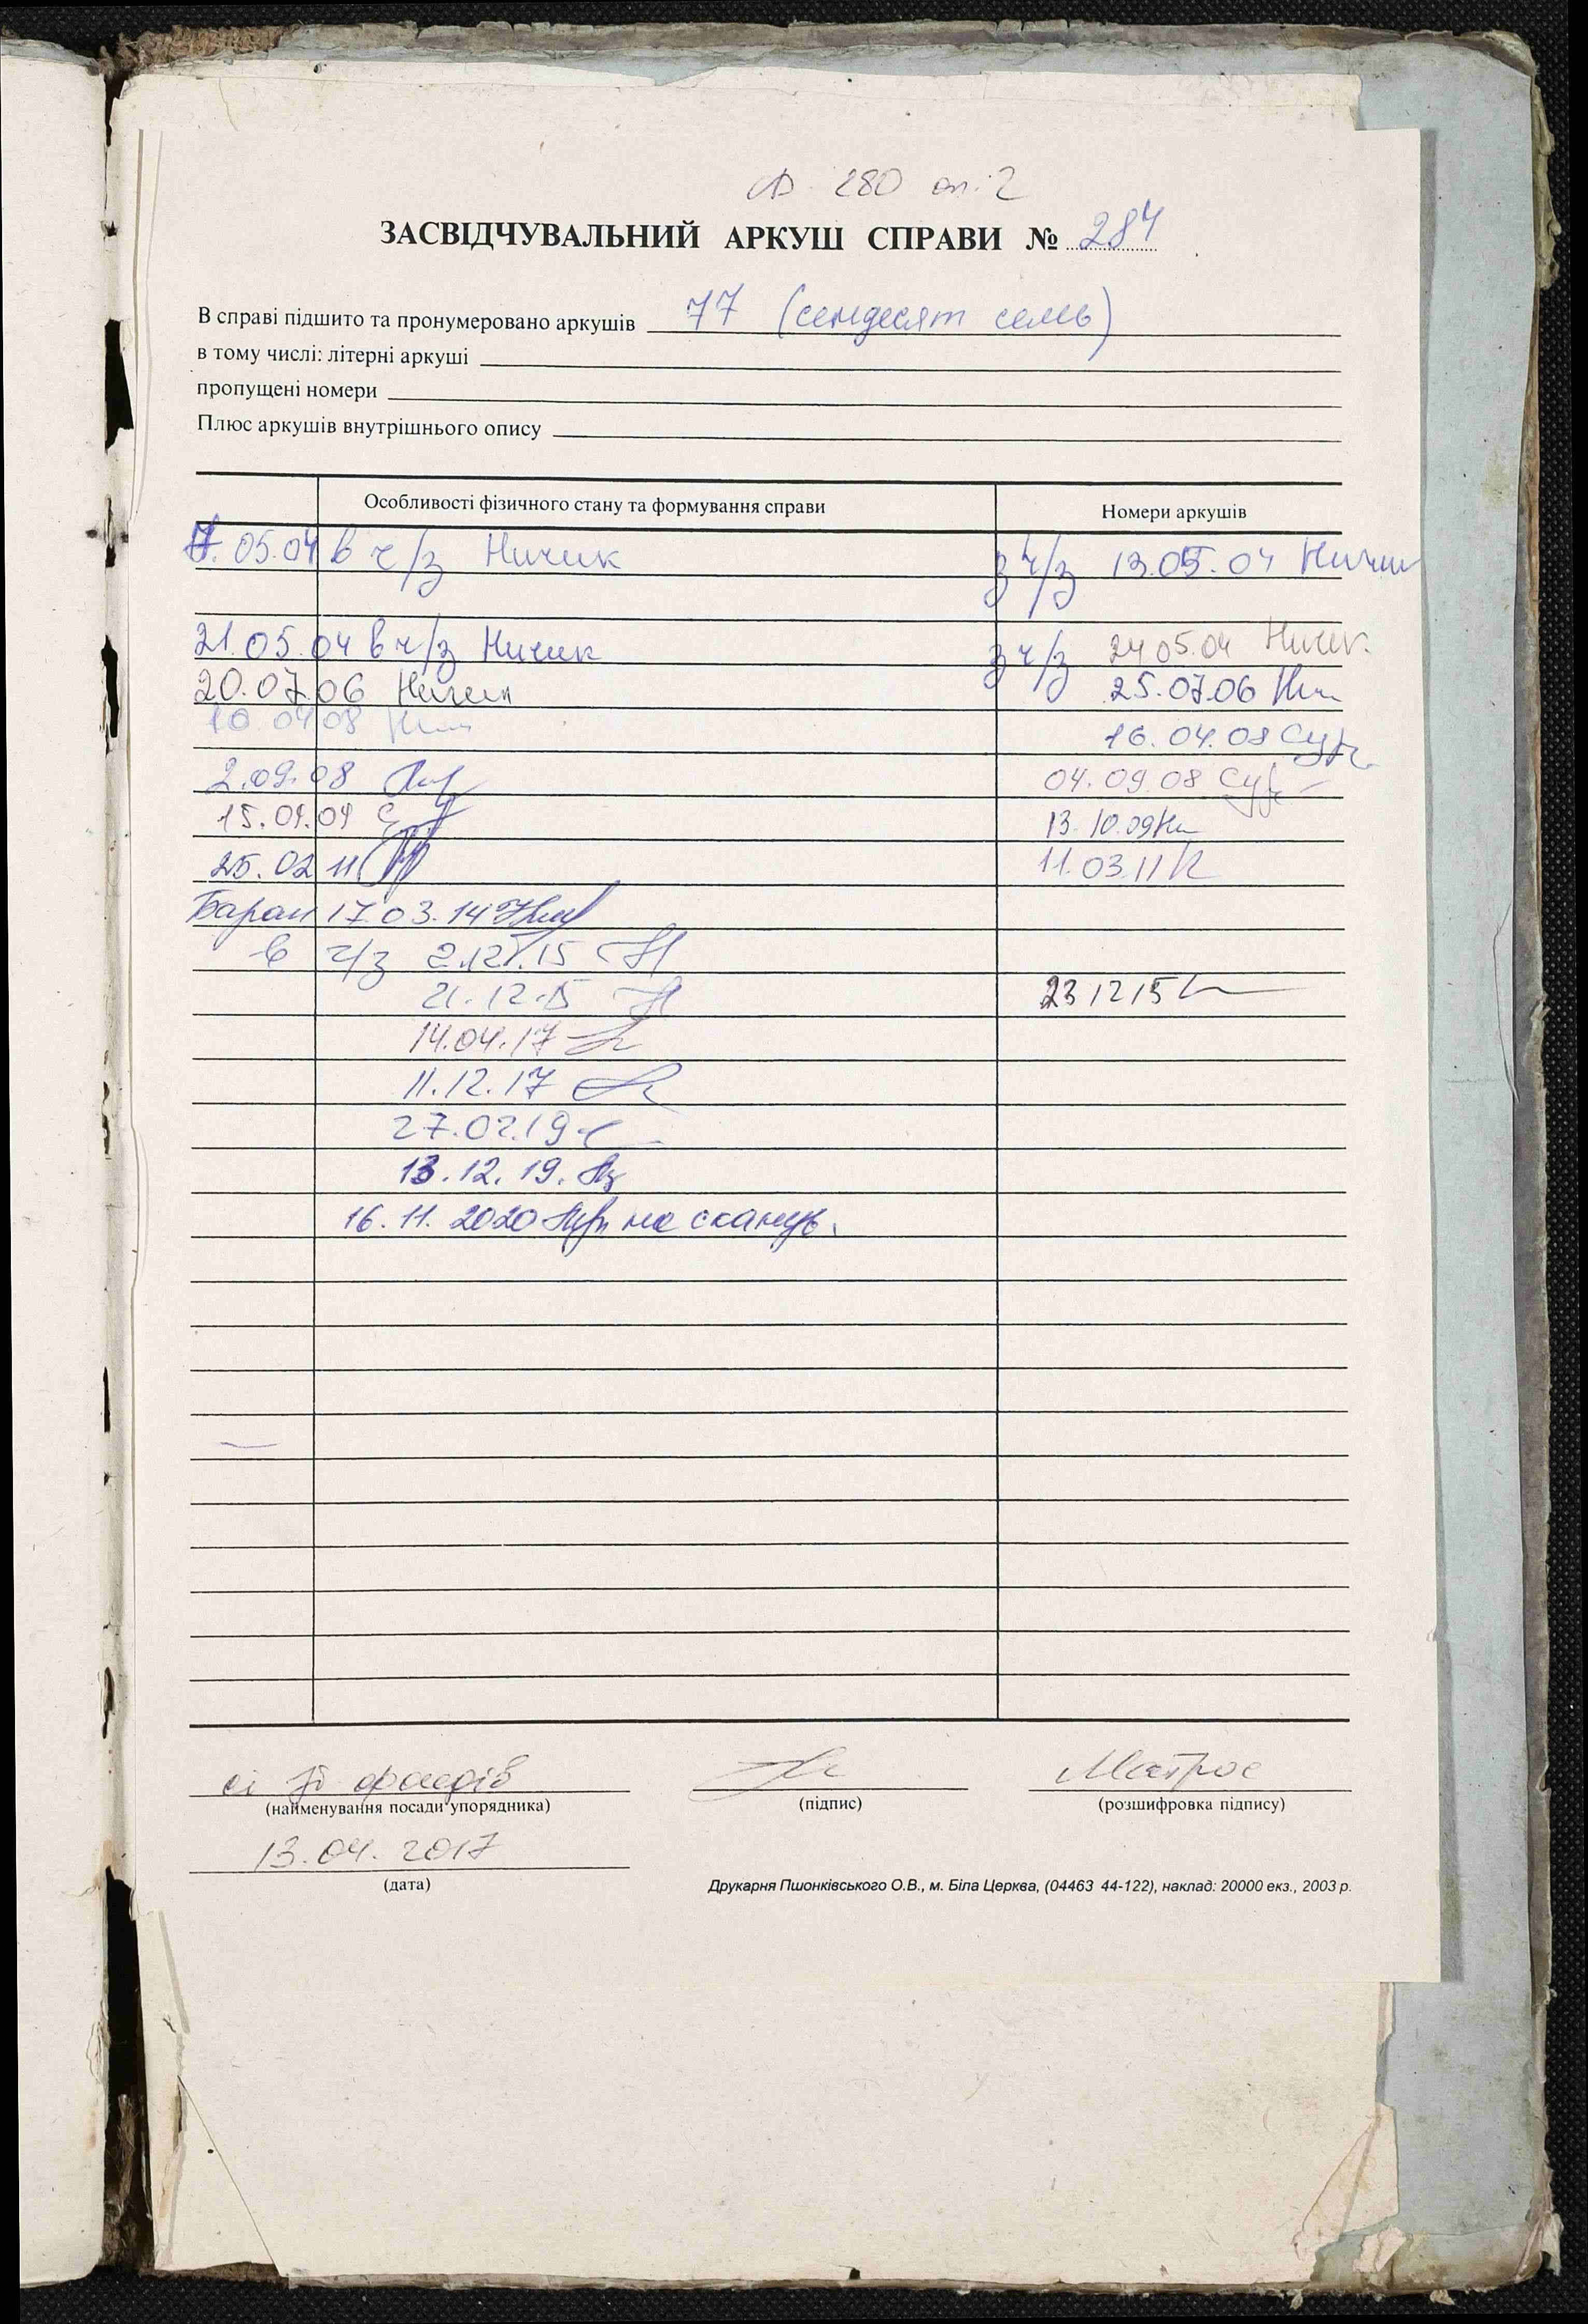 Ф. 280 оп. 2
ЗАСВІДЧУВАЛЬНИЙ АРКУШ СПРАВИ № 284
В справі підшито та пронумеровано аркушів 77 (семдесят семь)
в тому числі: літерні аркуші
пропущені номери
Плюс аркушів внутрішнього опису
Особливості фізичного стану та формування справи Номери аркушів
7.05.04 в ч/з Ничик з ч/з 13.05.04 Ничик
21.05.04 в ч/з Ничик з ч/з 24 05.04 Ничик
20.07.06 Ничик 25.07.06
10.04 08 16.04.08
2.09.08 04.09.08
15.09.09 13.10.09
25.02 11 11.03.11
Баран 17.03.14
в ч/з 2.12.15
21.12.15 23 12 15
14.04.17
11.12.17
27.02.19
13.12.19.
16.11.2020 на сканув.
фондів Матрос
(найменування посади упорядника) (підпис) (розшифровка підпису)
13.04.2017
(дата) Друкарня Пшонківського О.В., м. Біла Церква, (04463 44-122), наклад: 20000 екз., 2003 р.